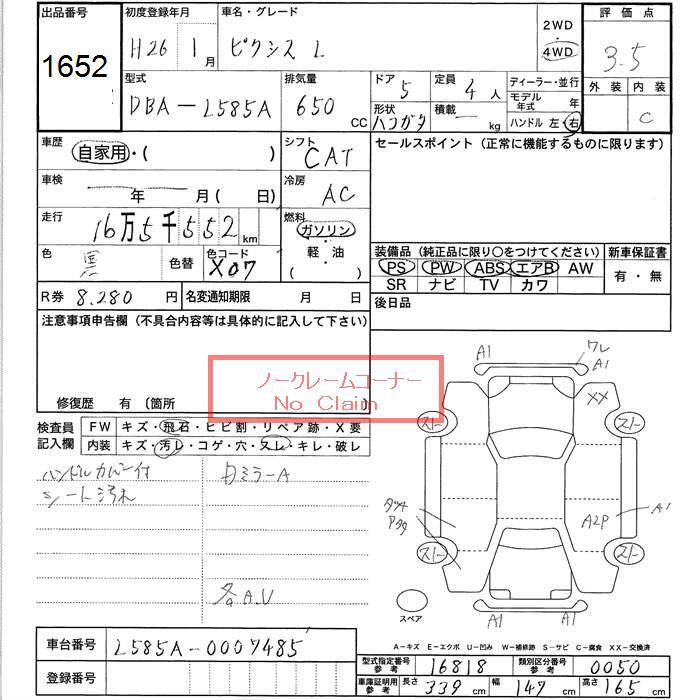 出品番号 初度登録年月 車名・グレード 2WD 評価点
1652 H26年 1月 ピクシス L 4WD 3.5
型式 排気量 ドア 定員 ディーラー・並行 外装 内装
DBA-L585A 650 CC 5 4人 モデル年式 年 C
形状 積載 ハンドル 左・右
ハコガタ ― kg
車歴 シフト セールスポイント (正常に機能するものに限ります)
自家用・( ) CAT
車検 冷房
年 月(日) AC
走行 燃料
16万5千552km ガソリン
色 色コード 軽・油
黒 色替 X07 ( )
装備品 (純正品に限り○をつけてください) 新車保証書
PS PW ABS エアB AW 有・無
SR ナビ TV カワ
R券 8.280円 名変通知期限 月 日 後日品
注意事項申告欄 (不具合内容等は具体的に記入して下さい)
ノークレームコーナー
No Claim
修復歴 有 〔箇所
検査員 FW キズ・飛石・ヒビ割・リペア跡・X要
記入欄 内装 キズ・汚レ・コゲ・穴・スレ・キレ・破レ
ハンドルカバー付 ミラーA
シート汚れ
各A.U
A1 A1 ワレ
XX
スト スト
A2P A1
スト スト
スペア A1 A1
A-キズ E-エクボ U-凹み W-補修跡 S-サビ C-腐食 XX-交換済
車台番号 L585A-0007485
登録番号
型式指定番号 参考 16818 類別区分番号 参考 0050
車庫証明用 参考 長さ 339cm 幅 147cm 高さ 165cm